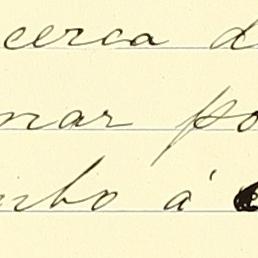 cerca d
mar po
nho á